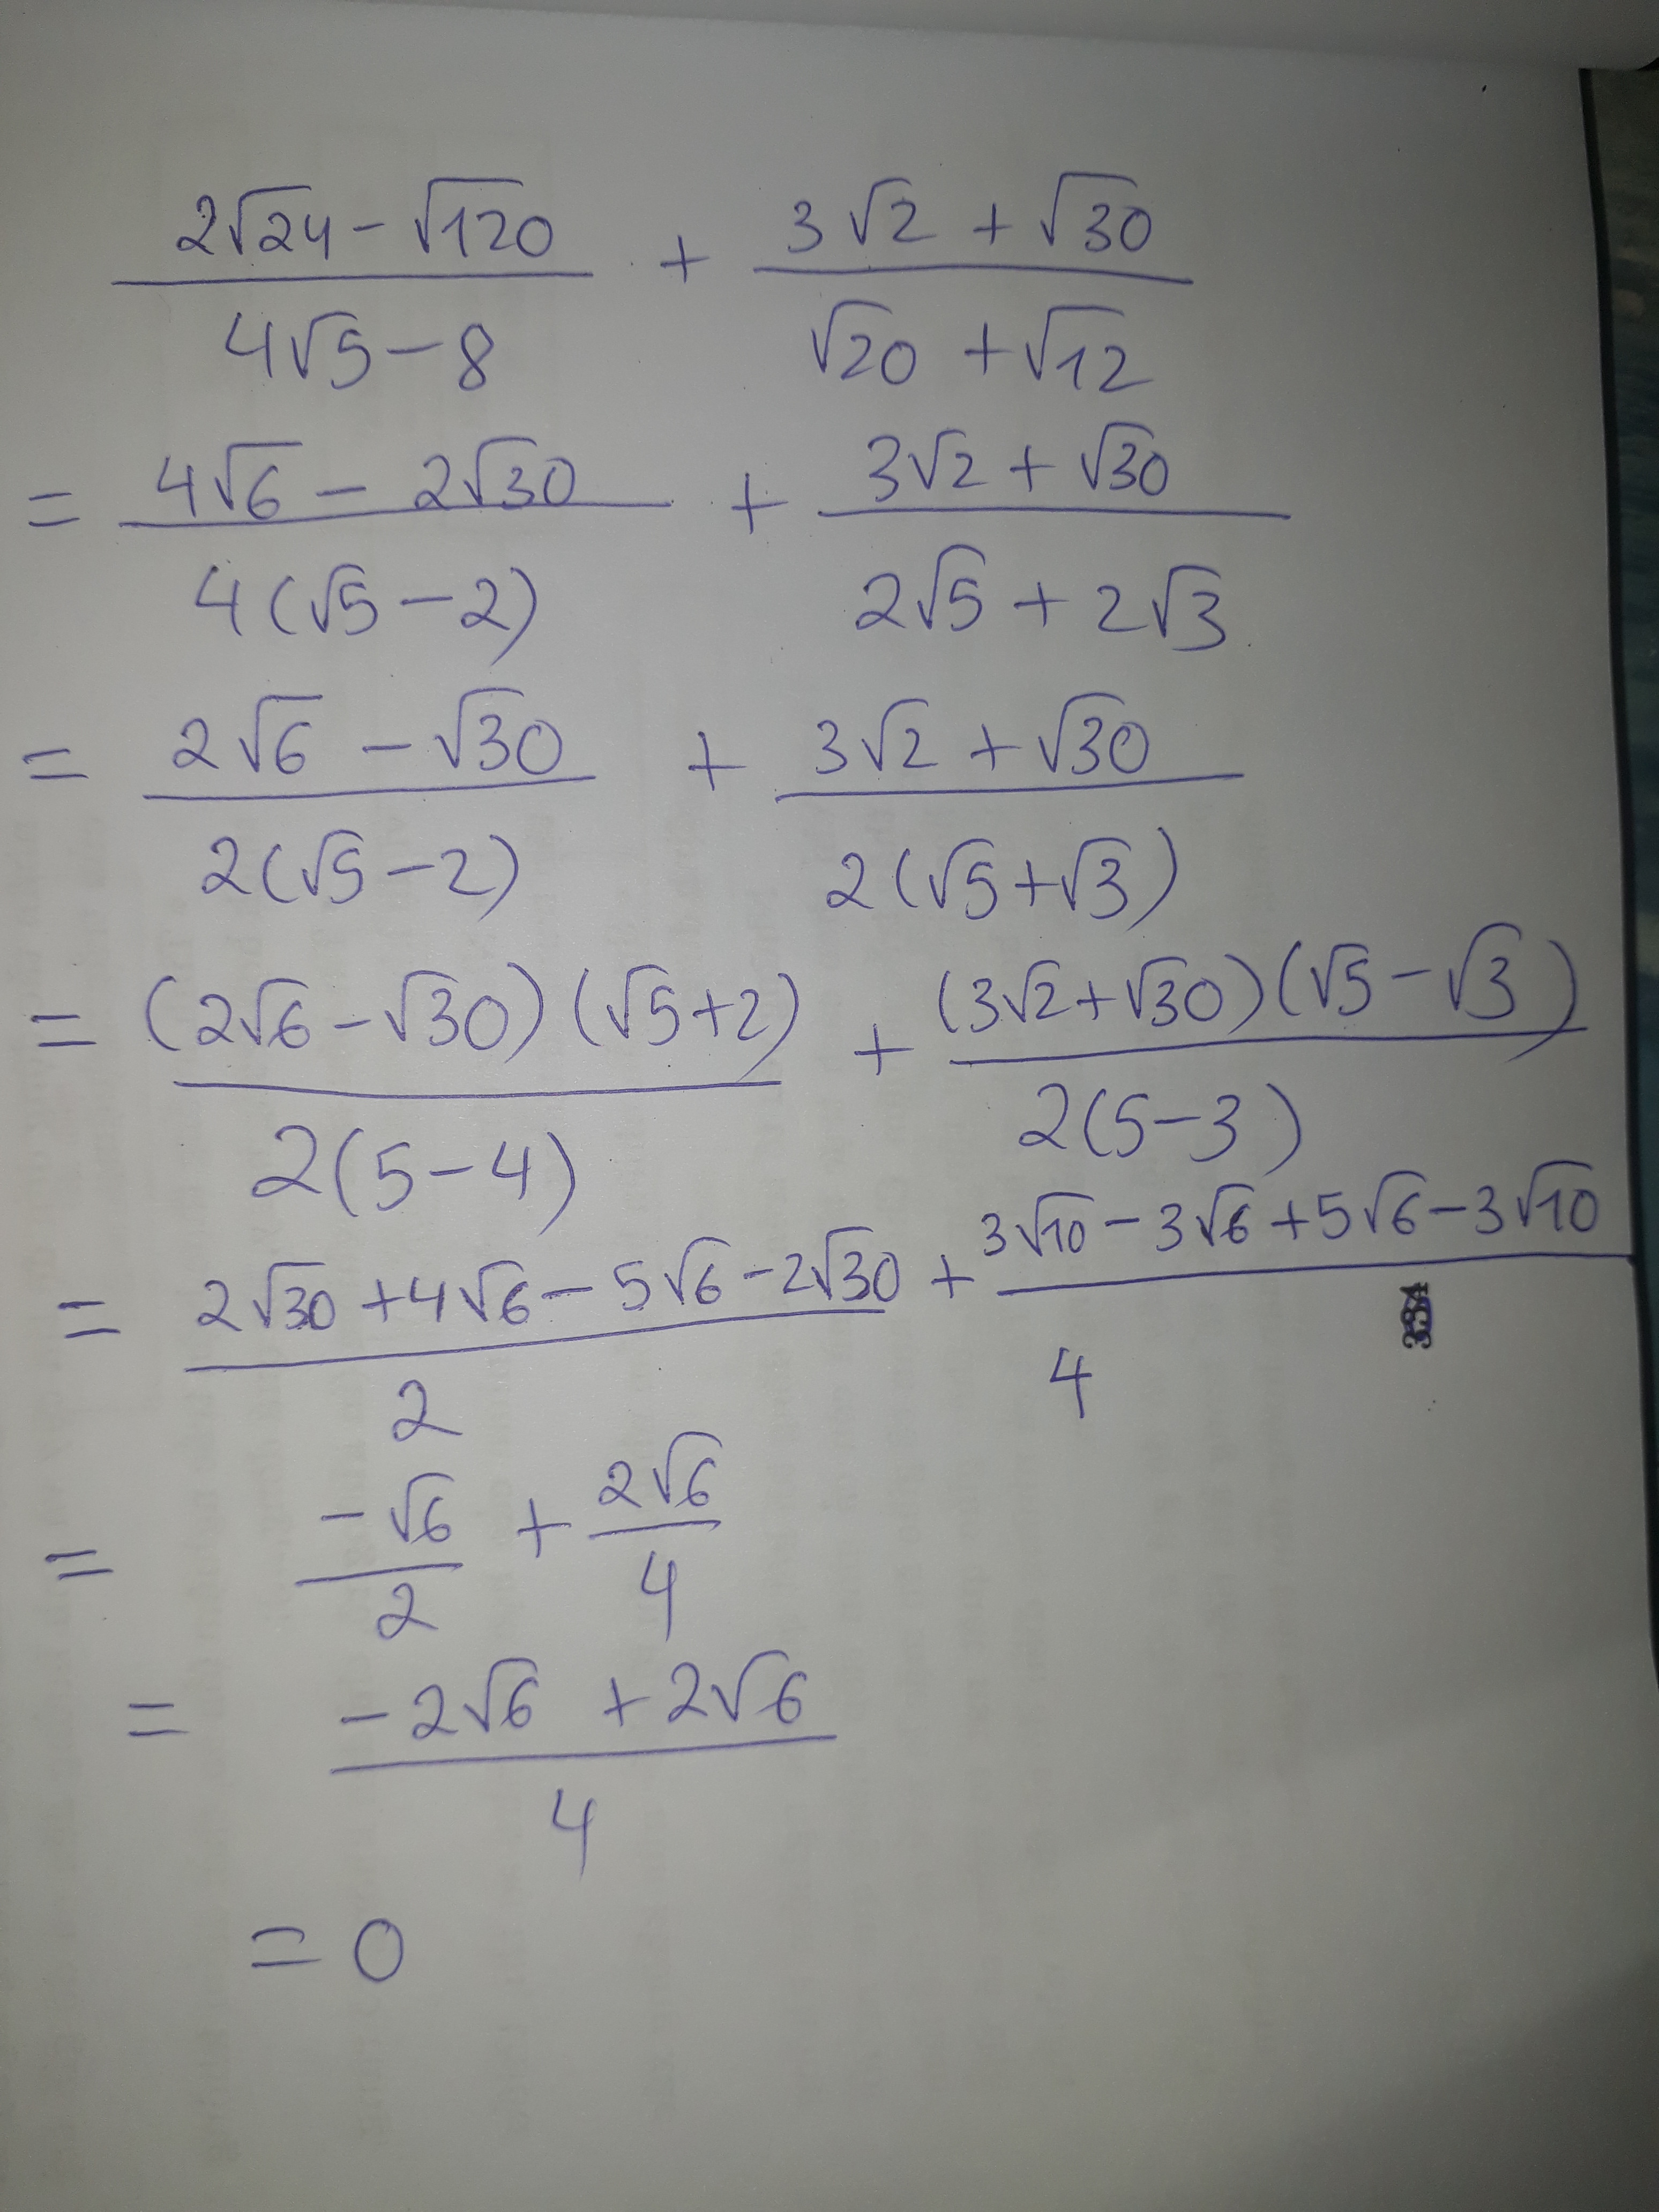 (2√24 - √120)/(4√5 - 8) + (3√2 + √30)/(√20 + √12)
= (4√6 - 2√30)/(4(√5 - 2)) + (3√2 + √30)/(2√5 + 2√3)
= (2√6 - √30)/(2(√5 - 2)) + (3√2 + √30)/(2(√5 + √3))
= ((2√6 - √30)(√5 + 2))/(2(5 - 4)) + ((3√2 + √30)(√5 - √3))/(2(5 - 3))
= (2√30 + 4√6 - 5√6 - 2√30)/2 + (3√10 - 3√6 + 5√6 - 3√10)/4
= (-√6)/2 + (2√6)/4
= (-2√6 + 2√6)/4
= 0